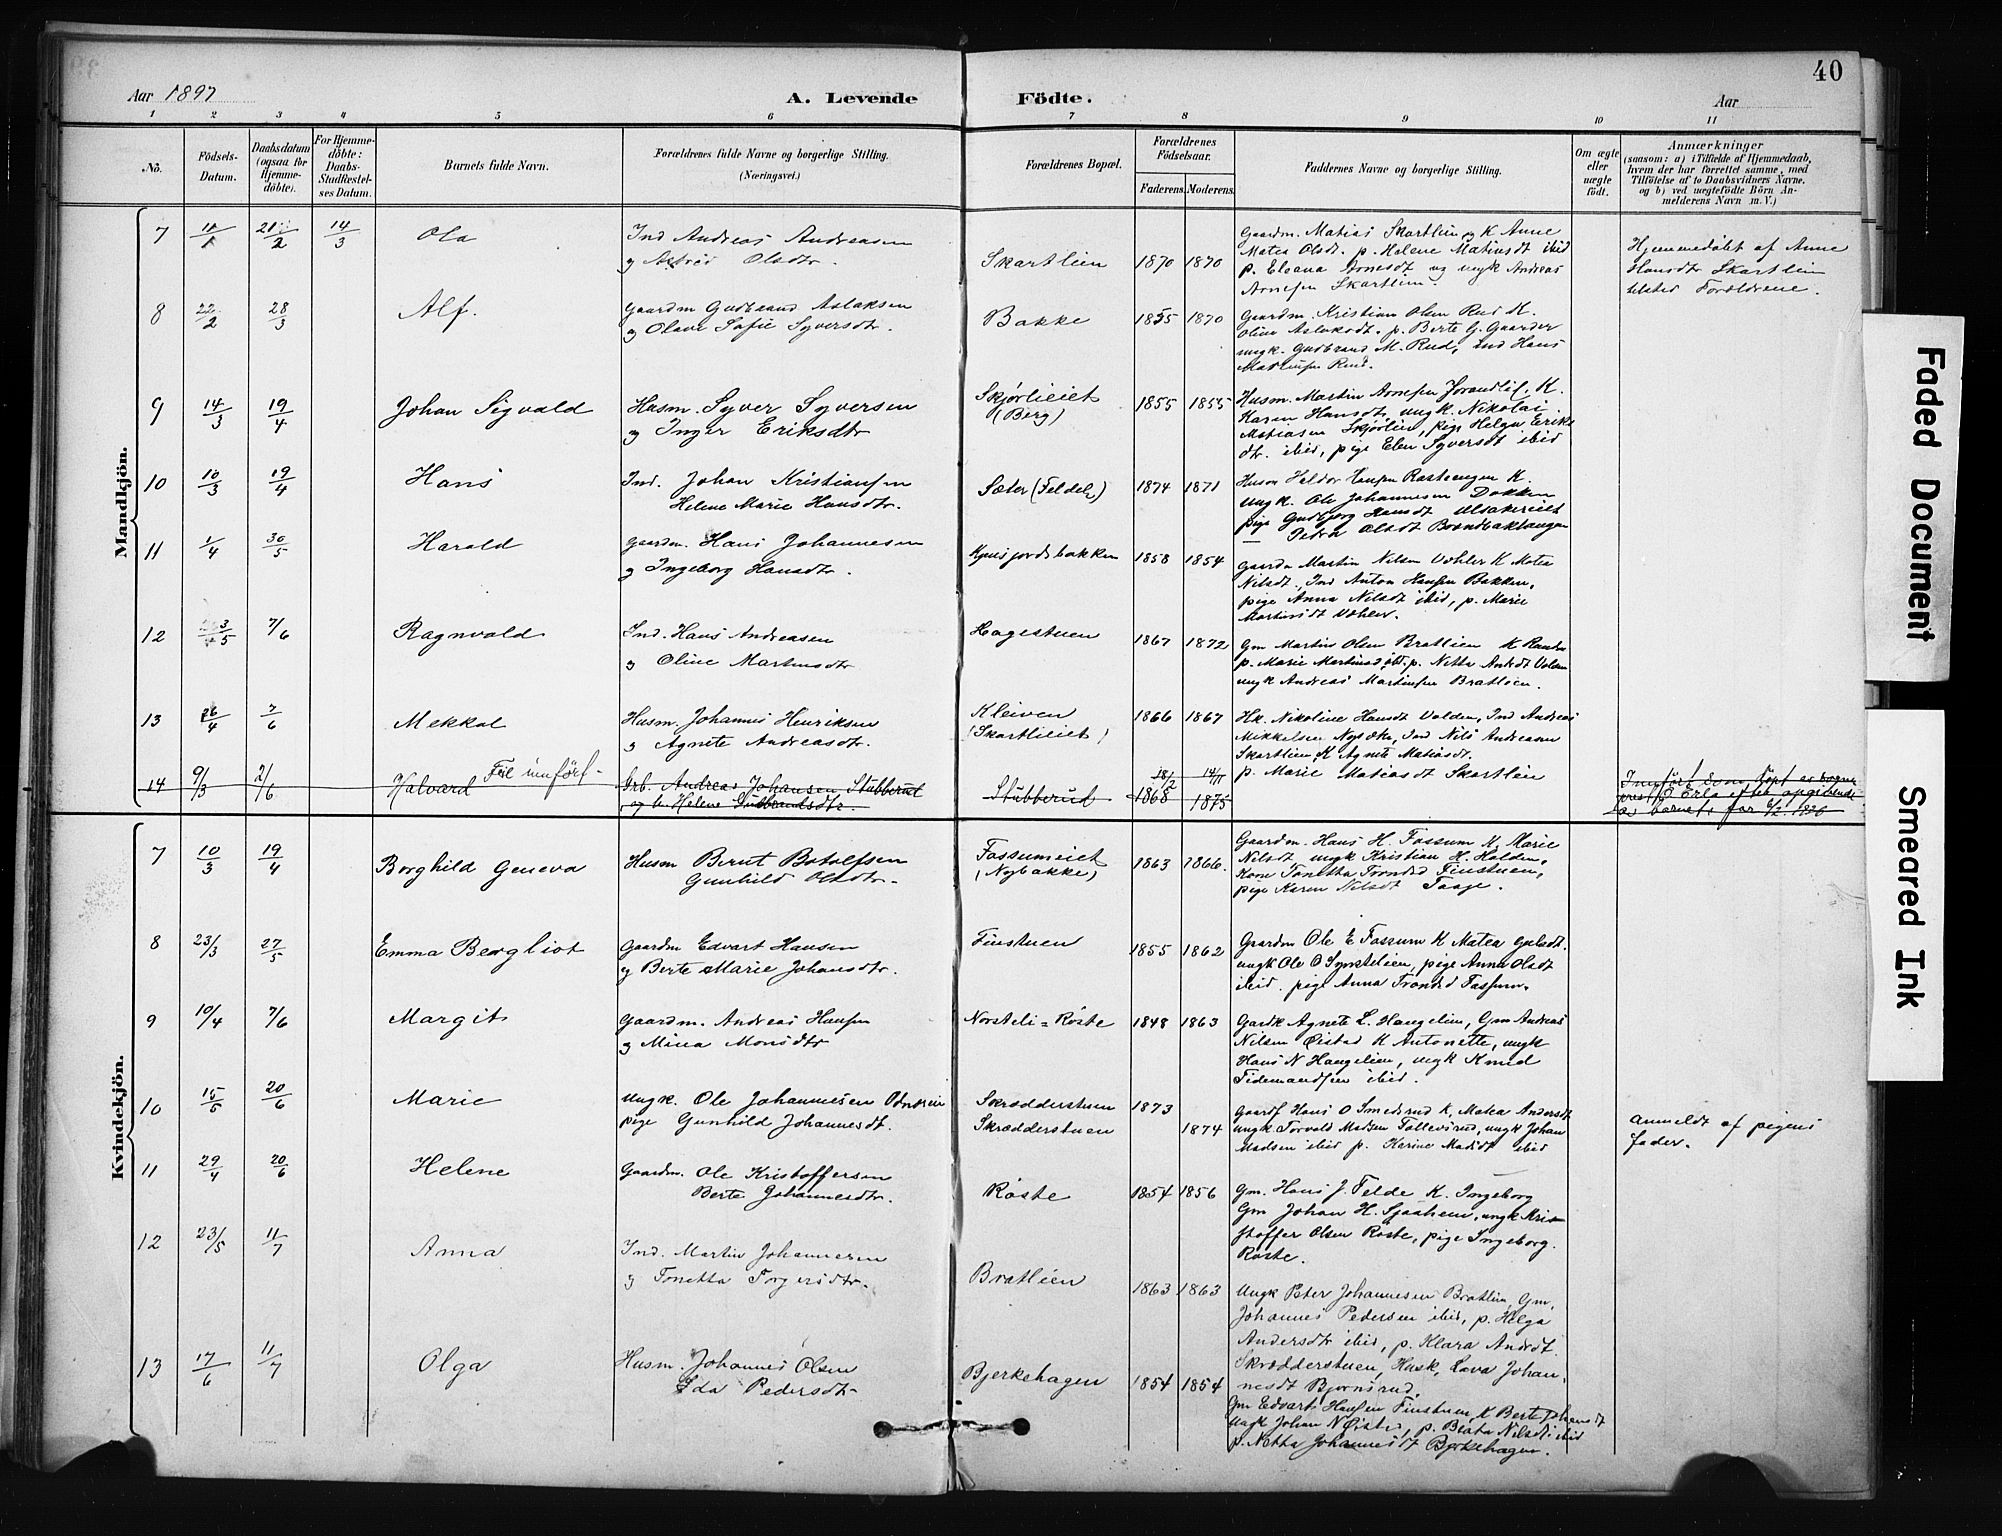 40
Aar 1897
A. Levende Födte.
Aar
1 2 3 4 5 6 7 8 9 10 11
No.
Födsels-Datum.
Daabsdatum (ogsaa for Hjemme-döbte).
For Hjemme-döbte: Daabs-Stadfæstel-ses Datum.
Barnets fulde Navn.
Forældrenes fulde Navne og borgerlige Stilling.
(Næringsvei.)
Forældrenes Bopæl.
Forældrenes Födselsaar.
Faderens. Moderens.
Faddernes Navne og borgerlige Stilling.
Om ægte eller uægte födt.
Anmærkninger
(saasom: a) i Tilfælde af Hjemmedaab,
hvem der har forrettet samme, med
Tilföielse af to Daabsvidners Navne,
og b) ved uægtefödte Börn An-
melderens Navn m. V.)
Mandkjön.
7 11/1 21/2 14/3 Ola
Ind Andreas Andreasen
og Astrid Olsdtr.
Skartlien 1870 1870
Gaardm. Matias Skartlien og K Anne
Matea Olsdt. p. Helene Matiasdt ibid
p. Eleana Arnesdt og ungk Andreas
Arnesen Skartlien.
Hjemmedøbt af Anne
Hansdtr Skartlien
tilsted Forældrene.
8 22/2 28/3 Alf.
Gaardm Gudbrand Aslaksen
og Olave Sofie Syversdtr.
Bakke 1855 1870
Gaardm. Kristian Olsen Rud K.
Oline Aslaksdt. p. Berte G. Gaarder
ungk. Gudbrand M. Rud, ind Hans
Rud.
9 14/3 19/4 Johan Sigvald
Husm. Syver Syversen
og Inger Eriksdtr
Skjørlieiet
(Berg)
1855 1855
Husm. Martin Arnesen K.
Karen Hansdtr, ungk. Nikolai
Matiasen Skjørlien, pige Helga Eriks
dtr. ibid, pige Elen Syversdt ibid
10 10/3 19/4 Hans
Ind. Johan Kristiansen
Helene Marie Hansdtr.
Sæter 1874 1871
Husm Halvor Hansen K.
Ungk. Ole Johannesen Dokken
pige Gudbjørg Hansdt
— Petra Olsdt
11 1/4 30/5 Harald
Gaardm. Hans Johannesen
og Ingeborg Hansdtr.
1858 1854
Gaardm Martin Nilsen K Matea
Nilsdt, Ind Anton Hansen Bakken,
pige Anna Nilsdt ibid, p. Marie
12 7/6 Ragnvald
Ind. Hans Andreasen
og Oline Martinsdtr
Hagestuen 1867 1872
Gm Martin Olsen Bratlien K
p. Marie Martinsd ibd. p. Netta
ungk Andreas Martinsen Bratlien.
13 26/4 7/6 Mekkal
Husm. Johannes Henriksen
og Agnete Andreasdtr.
Kleiven
(Skartlieiet)
1866 1867
Hk. Nikoline Hansdt Volden, Ind Andreas
Mikkelsen Ind Nils Andreasen
Skartlien, K Agnete Matiasdt.
p. Marie Matiasdt Skartlien
14 9/3 2/6 Halvard Feil innført -
Grb. Andreas Johansen Stubberud
og h. Helene Gudbrandsdtr.
Stubberud 18/2 1868 14/11 1875
Kvindekjön.
7 10/3 19/4 Borghild Geneva
Husm Bernt Botolfsen
Gunhild Olsdtr -
Fossumeiet
(Nybakke)
1863 1866.
Gaardm. Hans H. Fossum K. Marie
Nilsdt, ungk Kristian H. Holden,
Kone Tonetta Trondsd Finstuen,
pige Karen Nilsdt
8 23/3 27/5 Emma Bergliot
Gaardm Edvart Hansen
og Berte Marie Johansdtr.
Finstuen 1855 1862
Gaardm Ole E Fossum K Matea
ungk Ole O pige Anna Olsdt
ibid. pige Anna Trondsd Fossum.
9 10/4 7/6 Margit
Gaardm. Andreas Hansen
og Mina Monsdtr
Norsteli = Røste 1848 1863
Gardk Agnete L. Haugelien, Gm Andreas
Nilsen Øistad K Antonette, ungk
Hans N Haugelien, ungk Knud
Tidemandsen ibid.
10 15/5 20/6 Marie
Ungk. Ole Johannesen
pige Gunhild Johannesdt.
Skrædderstuen
Skrædderstuen
1873
1874
Gaardf Hans O Smedsrud K. Matea Andersdt
ungk Torvald Madsen ungk Johan
Madsen ibid p. Karine Madsdt ibid
Anmeldt af pigens
fader.
11 29/4 20/6 Helene
Gaardm. Ole Kristoffersen
Berte Johannesdtr.
Røste 1854 1856
Gm. Hans J. Felde K. Ingeborg
Gm Johan H. Sjaahem, ungk Kris
stoffer Olsen Røste, pige Ingeborg.
Røste.
12 23/5 11/7 Anna
Ind. Martin Johannesen
og Tonetta Torgersdtr.
Bratlien 1863 1863
Ungk Peter Johannesen Bratlien, Gm.
Johannes Pedersen ibid, p. Helga
Andersdtr ibid, p. Klara Andrdt.
Skrædderstuen, Husk, Lava Johan
nesdt Bjørnsrud.
13 17/6 11/7 Olga
Husm. Johannes Olsen
Ida Pedersdt -
Bjerkehagen 1854 1854
Gm Edvart Hansen Finstuen, K Berte Johansdt
ungk Johan N Øistad, p. Beata Nilsdt ibid
p. Netta Johannesdt Bjerkehagen.
Faded Document
Smeared Ink